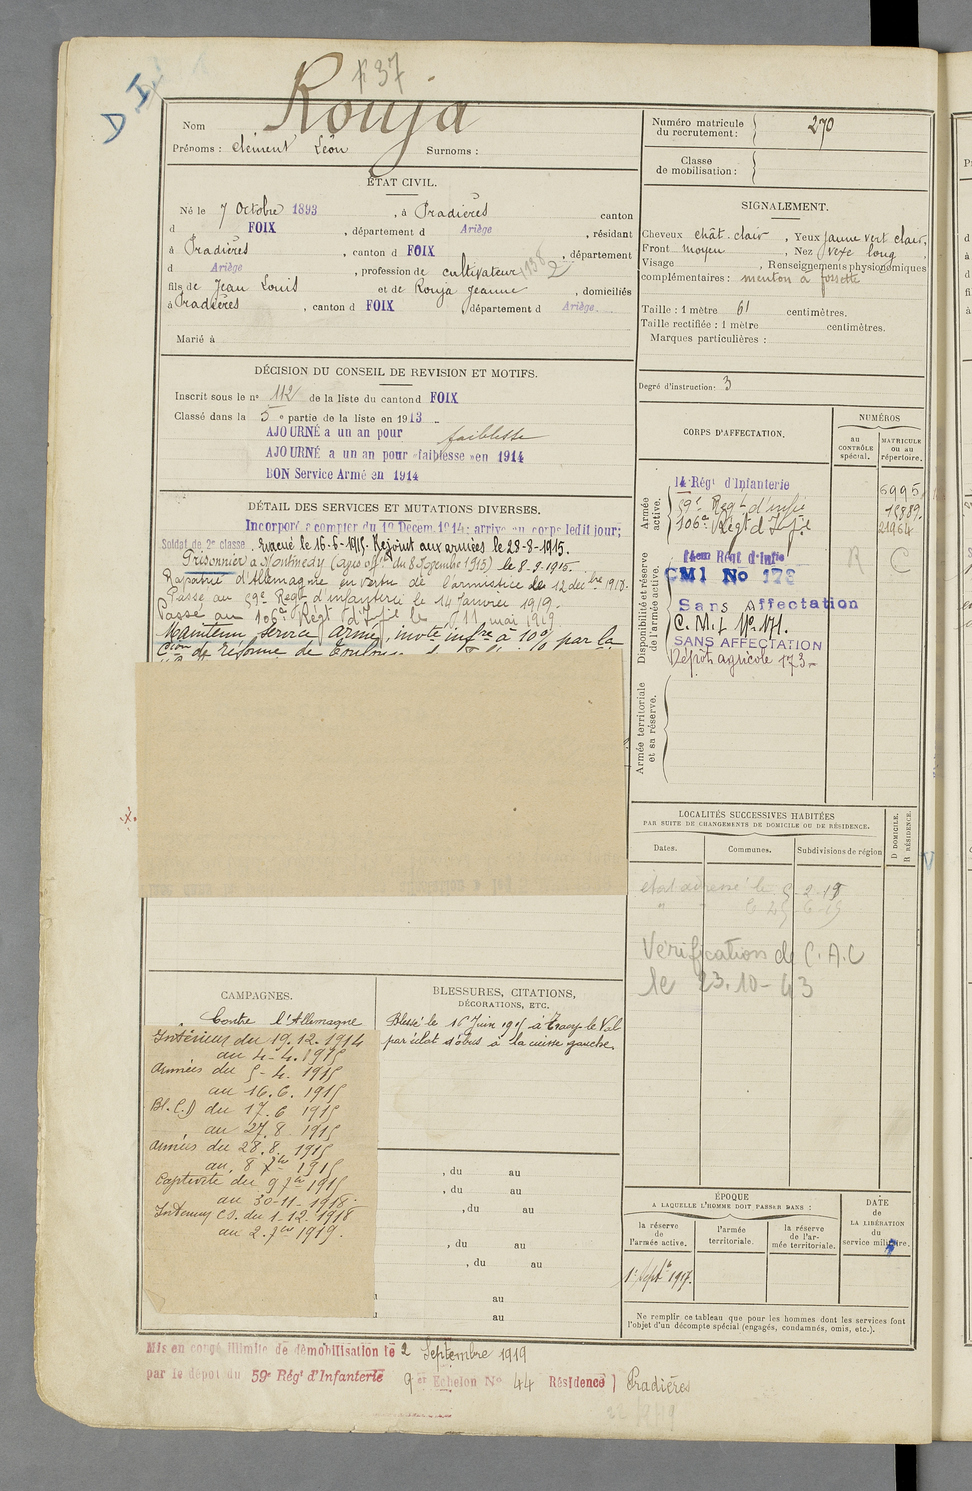 n 37
D I
Nom Rouja
Prénoms : Clément Léon Surnoms :
Numéro matricule du recrutement : 270
Classe de mobilisation :
ÉTAT CIVIL.
Né le 7 Octobre 1893, à Pradières canton
d FOIX, département d Ariège, résidant
à Pradières, canton d FOIX, département
d Ariège, profession de cultivateur
fils de Jean Louis et de Rouja Jeanne, domiciliés
à Pradières, canton d FOIX, département d Ariège.
Marié à
SIGNALEMENT.
Cheveux chât. clair, Yeux jaune vert clair,
Front moyen, Nez vexe long
Visage , Renseignements physionomiques
complémentaires : menton à fossette
Taille : 1 mètre 61 centimètres.
Taille rectifiée : 1 mètre centimètres.
Marques particulières :
Degré d'instruction : 3
DÉCISION DU CONSEIL DE REVISION ET MOTIFS.
Inscrit sous le n° 112 de la liste du canton d FOIX
Classé dans la 5 e partie de la liste en 1913
AJOURNÉ a un an pour faiblesse
AJOURNÉ a un an pour faiblesse en 1914
BON Service Armé en 1914
CORPS D'AFFECTATION.
NUMÉROS
au CONTRÔLE spécial.
MATRICULE ou au répertoire.
Armée active.
14 Régt d'Infanterie 6995
59e Regt d'infie 18889
106e Régt d'Infie 21964
Disponibilité et réserve de l'armée active.
14em Régt d'Infie R C
CMI No 178
Sans Affectation
C. M. I. N° 171.
SANS AFFECTATION
Dépôt agricole 173
Armée territoriale et sa réserve.
DÉTAIL DES SERVICES ET MUTATIONS DIVERSES.
Incorporé a compter du 19 Décem. 1914; arrivé au corps ledit jour;
Soldat de 2e classe, évacué le 16-6-1915. Rejoint aux armées le 28-8-1915.
Prisonnier à Montmedy (avis off du 8 Septembre 1915) le 8.9.1915.
Rapatrié d'Allemagne en vertu de l'armistice le 12 décbre 1918.
Passé au 59e Régt d'infanterie le 14 Janvier 1919.
Passé au 106e Régt d'Infie le 11 mai 1919
Maintenu service armé, invte infre à 10% par la
Cion de réforme de Toulouse
LOCALITÉS SUCCESSIVES HABITÉES
PAR SUITE DE CHANGEMENTS DE DOMICILE OU DE RÉSIDENCE.
Dates. Communes. Subdivisions de région
D DOMICILE. R RÉSIDENCE.
état adressé le 5-2-18
Vérification de C.A.C
le 23.10-43
CAMPAGNES.
Contre l'Allemagne
Intérieur du 19.12.1914
au 4-4.1915
Armées du 5-4.1915
au 16.6.1915
Bl.(C.) du 17.6 1915
au 27.8 1915
Armées du 28.8.1915
au 8 7bre 1915
Captivité du 9 7bre 1915
au 30-11-1918.
Intérieur CS. du 1-12.1918
au 2.7bre 1919.
BLESSURES, CITATIONS, DÉCORATIONS, ETC.
Blessé le 16 Juin 1915 à Tracy-le-Val
par éclat d'obus à la cuisse gauche.
, du au
, du au
, du au
, du au
, du au
au
au
ÉPOQUE
A LAQUELLE L'HOMME DOIT PASSER DANS :
la réserve de l'armée active.
l'armée territoriale.
la réserve de l'armée territoriale.
DATE de LA LIBÉRATION du service militaire.
1er Septbre 1917.
Ne remplir ce tableau que pour les hommes dont les services font
l'objet d'un décompte spécial (engagés, condamnés, omis, etc.).
Mis en congé illimité de démobilisation le 2 Septembre 1919
par le dépôt du 59e Régt d'Infanterie 9 er Echelon No 44 Résidence ) Pradières
22/9/19